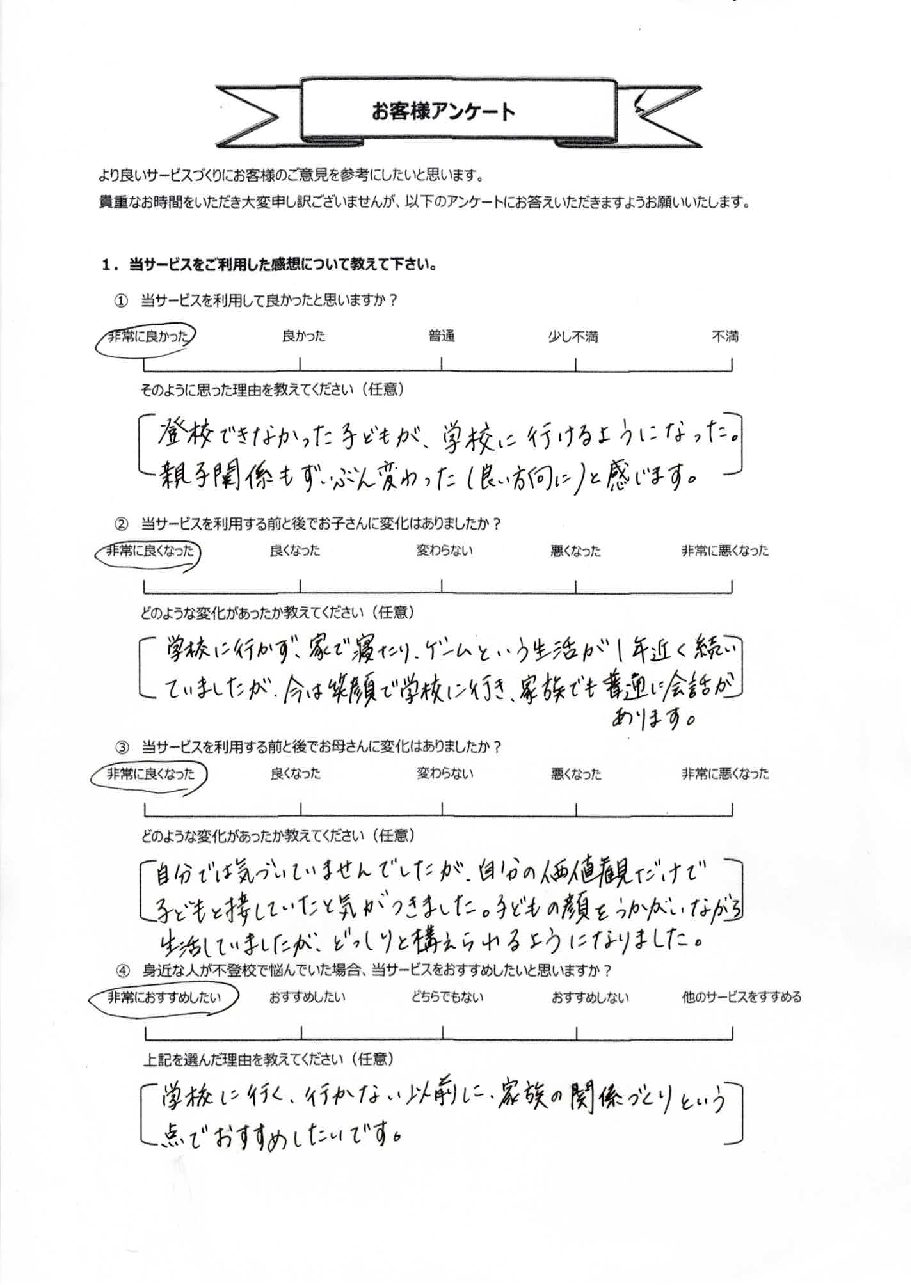 お客様アンケート
より良いサービスづくりにお客様のご意見を参考にしたいと思います。
貴重なお時間をいただき大変申し訳ございませんが、以下のアンケートにお答えいただきますようお願いいたします。
1．当サービスをご利用した感想について教えて下さい。
① 当サービスを利用して良かったと思いますか？
非常に良かった 良かった 普通 少し不満 不満
そのように思った理由を教えてください（任意）
登校できなかった子どもが、学校に行けるようになった。
親子関係もずいぶん変わった(良い方向に)と感じます。
② 当サービスを利用する前と後でお子さんに変化はありましたか？
非常に良くなった 良くなった 変わらない 悪くなった 非常に悪くなった
どのような変化があったか教えてください（任意）
学校に行かず、家で寝たり、ゲームという生活が1年近く続い
ていましたが、今は笑顔で学校に行き、家族でも普通に会話が
あります。
③ 当サービスを利用する前と後でお母さんに変化はありましたか？
非常に良くなった 良くなった 変わらない 悪くなった 非常に悪くなった
どのような変化があったか教えてください（任意）
自分では気づいていませんでしたが、自分の価値観だけで
子どもと接していたと気がつきました。子どもの顔をうかがいながら
生活していましたが、どっしりと構えられるようになりました。
④ 身近な人が不登校で悩んでいた場合、当サービスをおすすめしたいと思いますか？
非常におすすめしたい おすすめしたい どちらでもない おすすめしない 他のサービスをすすめる
上記を選んだ理由を教えてください（任意）
学校に行く、行かない以前に、家族の関係づくりという
点でおすすめしたいです。